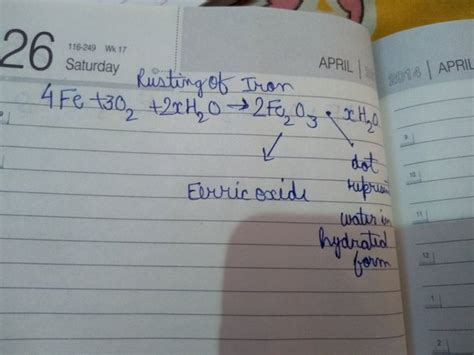 26
116-249 Wk 17
Saturday
APRIL
2014 APRIL
Rusting Of Iron
4Fe + 3O₂ + 2xH₂O → 2Fe₂O₃ • xH₂O
Ferric oxide
dot
represent
water in
hydrated
form
9
10
11
12
1
2